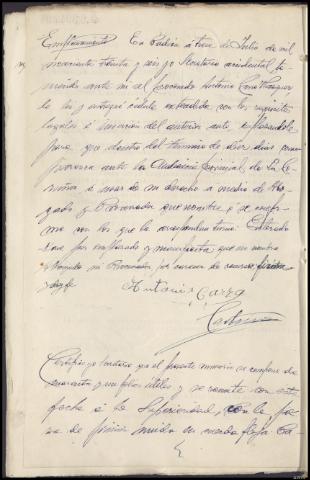 Emplazamiento En Padrón a trece de Julio de mil
novecientos treinta y seis yo Secretario accidental te
niendo ante mi al procesado Antonio
lei y entregué cédula extendida con los requisitos
legales é insercion del anterior auto, emplazandole
para que dentro del termino de diez dias com
parezca ante la Audiencia provincial, de La Co
ruña á usar de su derecho a medio de Abo
gado y Procurador que nombre, ó se confor
me con los que le correspondan turno. Enterado
se dió por emplazado y manifiesta que no nombra
Abogado ni Procurador por carecer de recursos, firma
doy fe
Antonio Garza
Certifico yo Secretario que el presente sumario se compone de
cuarenta y un folios útiles y se remite con esta
fecha á la Superioridad, con la pie
za de prision unida en media hoja